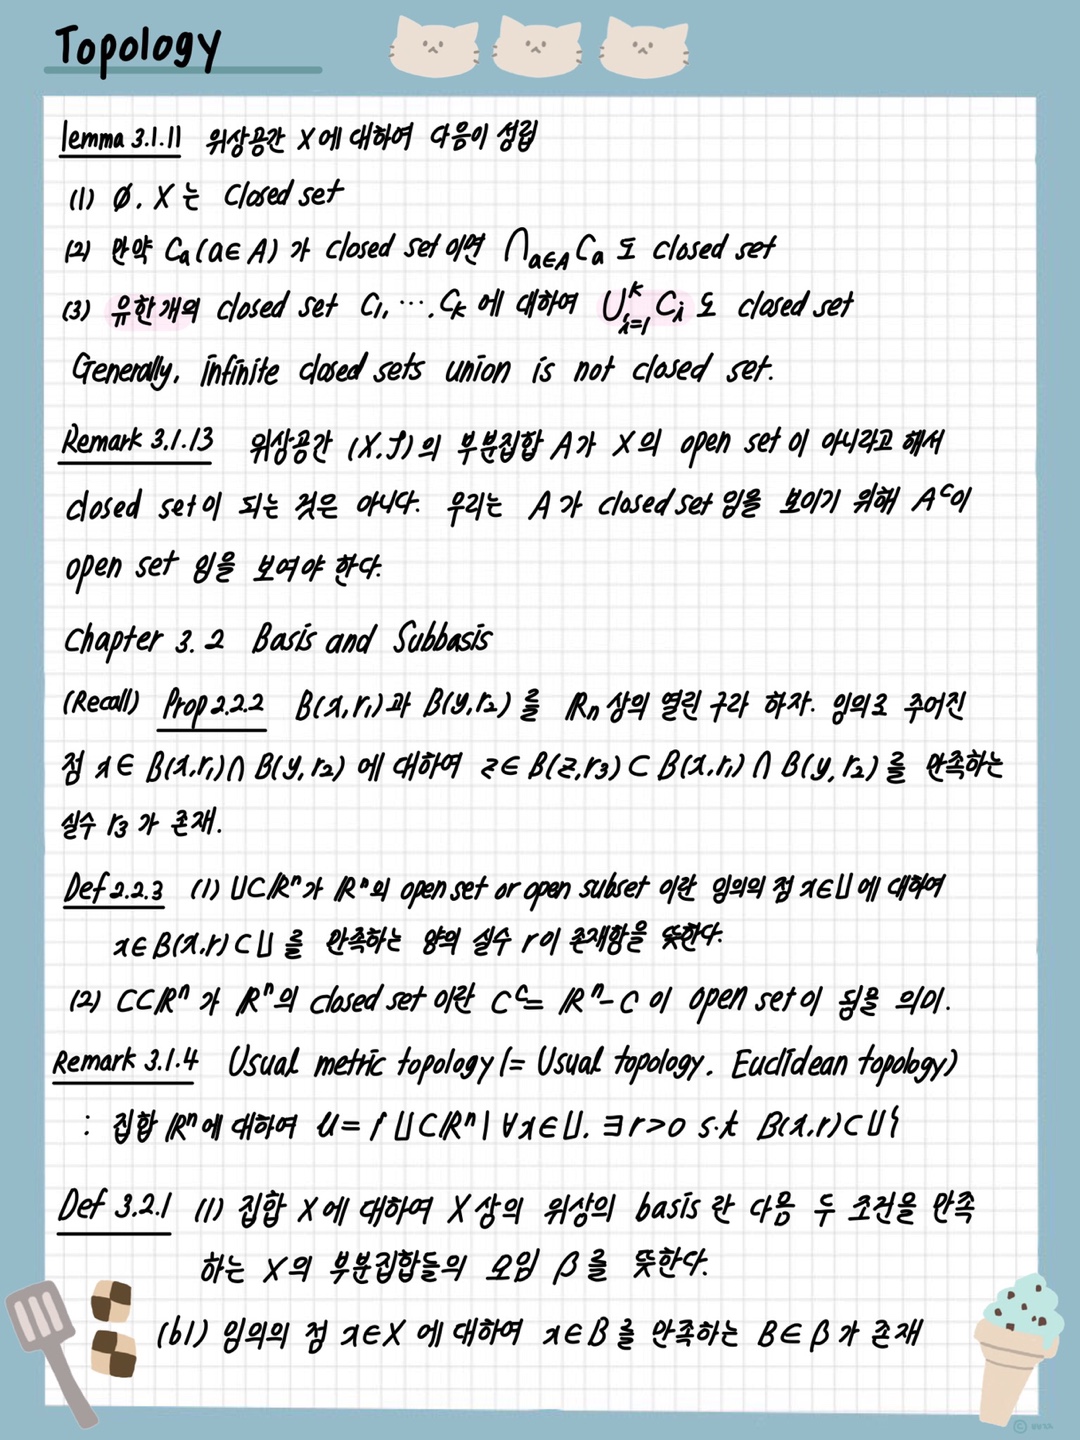 Topology
lemma 3.1.11 위상공간 X에 대하여 다음이 성립
(1) ∅, X는 Closed set
(2) 만약 Ca(a∈A)가 closed set이면 ⋂a∈A Ca도 closed set
(3) 유한개의 closed set C1, ⋯, Ck에 대하여 ⋃ᵏi=1 Ci도 closed set
Generally, infinite closed sets union is not closed set.
Remark 3.1.13 위상공간 (X, J)의 부분집합 A가 X의 open set이 아니라고 해서
closed set이 되는 것은 아니다. 우리는 A가 closed set임을 보이기 위해 Aᶜ이
open set 임을 보여야 한다.
Chapter 3.2 Basis and Subbasis
(Recall) Prop 2.2.2 B(x,r₁)과 B(y,r₂)를 Rn상의 열린 구라 하자. 임의로 주어진
점 x∈B(x,r₁)∩B(y,r₂)에 대하여 z∈B(z,r₃)⊂B(x,r₁)∩B(y,r₂)를 만족하는
실수 r₃가 존재.
Def 2.2.3 (1) U⊂Rⁿ가 Rⁿ의 open set or open subset이란 임의의 점 x∈U에 대하여
x∈B(x,r)⊂U를 만족하는 양의 실수 r이 존재함을 뜻한다.
(2) C⊂Rⁿ가 Rⁿ의 closed set이란 Cᶜ=Rⁿ-C이 open set이 됨을 의미.
Remark 3.1.4 Usual metric topology(=Usual topology, Euclidean topology)
: 집합 Rⁿ에 대하여 U={U⊂Rⁿ|∀x∈U, ∃r>0 s.t B(x,r)⊂U}
Def 3.2.1 (1) 집합 X에 대하여 X상의 위상의 basis란 다음 두 조건을 만족
하는 X의 부분집합들의 모임 β를 뜻한다.
(b1) 임의의 점 x∈X에 대하여 x∈B를 만족하는 B∈β가 존재